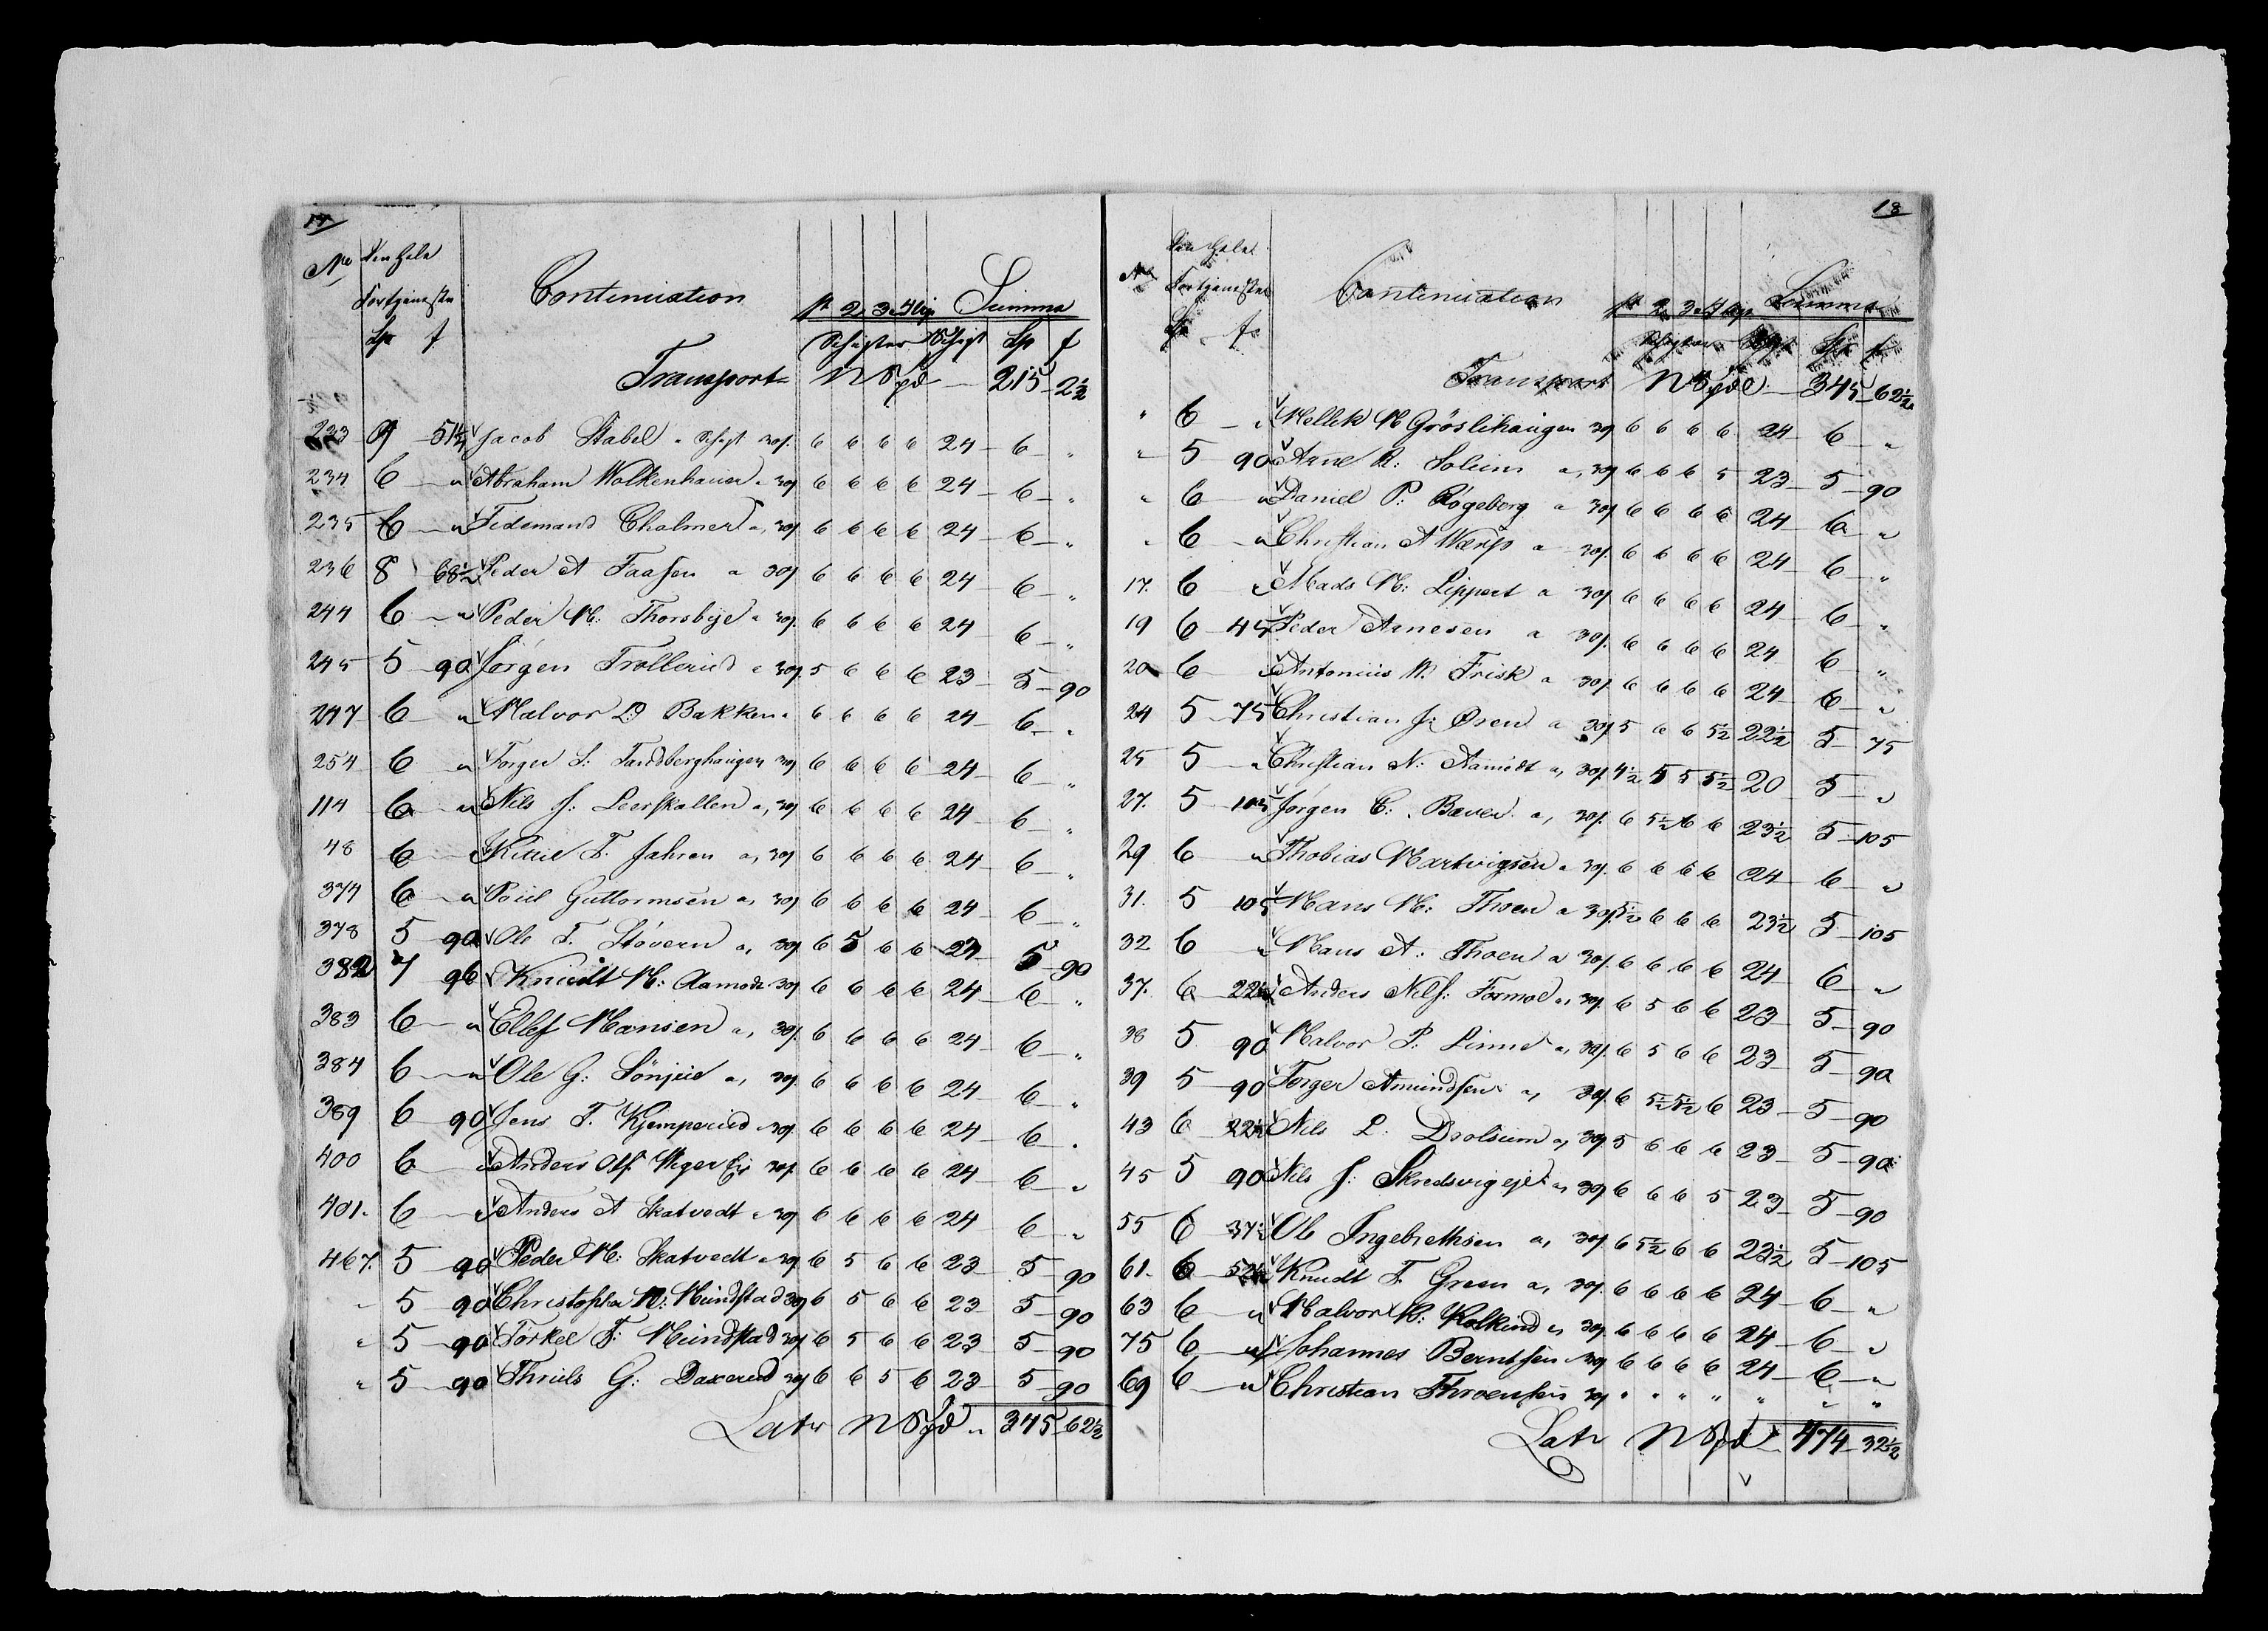 17
No den hele Fortjeneste Continuation 1t 2 3 4 Ug. Summa
Sp f Schigter Schigt Sp f
Transport NSpd — 215 - 2½
233 9 - 51½ Jacob Stabel a Schigt 30f. 6 6 6 6 24 - 6 - "
234 6 - " Abraham Wolkenhauer a 30f 6 6 6 6 24 - 6 - "
235 6 - " Fedemand Chalmer a, 30f 6 6 6 6 24 - 6 - "
236 8 68½ Peder A Faasen a 30f 6 6 6 6 24 - 6 - "
244 6 - " Peder H: Thorsbye a 30f. 6 6 6 6 24 6 - "
245 5 - 90 Jørgen Trollerud a 30f. 5 6 6 6 23 - 5 - 90
247 6 - " Halvor Bakken a 6 6 6 6 24 - 6 - "
254 6 - " Torger S: Tandberghaugen 30f 6 6 6 6 24 - 6 - "
114 6 - " Nils J: Leerskallen a, 30f 6 6 6 6 24 - 6 - "
48 6 - " Kittil T. Jahren a, 30f 6 6 6 6 24 - 6 - "
374 6 - " Poul Guttormsen a, 30f 6 6 6 6 24 - 6 - "
378 5 - 90 Ole T. Støvern a, 30f 6 5 6 6 23 - 5 - 90
382 7 96 Knudt H: Aamodt 30f 6 6 6 6 24 - 6 - "
383 6 - " Ellef Hansen a, 30f. 6 6 6 6 24 - 6 - "
384 6 - " Ole G: Sönjue a, 30f 6 6 6 6 24 - 6 - "
389 6 90 Jens T. Kjemperud 30f 6 6 6 6 24 - 6 - "
400 6 - " Anders Olf. 30f 6 6 6 6 24 - 6 - "
401. 6 - " Anders A Skatvedt a 30f 6 6 6 6 24 6 - "
467. 5 - 90 Peder H: Skatvedt a 30f 6 5 6 6 23 - 5 - 90
" 5 - 90 Christopher N: Hundstad 30f 6 5 6 6 23 - 5 - 90
" 5 - 90 Torkel T: Hundstad 30f 6 5 6 6 23 - 5 - 90
" 5 - 90 Thruls G: Daxerud 30f 6 6 5 6 23 - 5 - 90
Latr NSpd " 345 - 62½
18
No den hele Fortjeneste Continuation 1t 2 3 4 Ug. Summa
Sp f Schigter Schigt Sp f
Transport NSpd — 345 - 62½
" 6 - " Hellik H Gröslihaugen 30f 6 6 6 6 24 - 6 - "
" 5 90 Arne R: Solum a, 30f 6 6 6 5 23 - 5 - 90
" 6 - " Daniel P: Rogeberg a 30f 6 6 6 6 24 - 6 - "
" 6 - " Christian A Wærp a 30f. 6 6 6 6 24 - 6 - "
17. 6 " Mads H: Lippert a 30f 6 6 6 6 24 - 6 - "
19 6 - 45 Peder Arnesen a 30f. 6 6 6 6 24 6 - "
20 6 - " Antonius N: Frisk a 30f. 6 6 6 6 24 - 6 - "
24 5 - 75 Christian J: Øren a 30f. 5 6 6 5½ 22½ 5 - 75
25 5 - " Christian N: Aamodt a, 30f. 4½ 5 5 5½ 20 5 - "
27. 5 - 105 Jørgen C: Baver a, 30f. 6 5½ 6 6 23½ 5 - 105
29 6 - " Thobias Hartvigsen a 30f. 6 6 6 6 24 - 6 - "
31. 5 105 Hans H: Thoen a 30f. 5½ 6 6 6 23½ 5 - 105
32 6 - " Hans A: Thoen a 30f. 6 6 6 6 24 - 6 - "
37. 6 - 22½ Anders Nils: Formoe a, 30f. 6 5 6 6 23 - 5 - 90
38 5 90 Halvor P: Linne a, 30f. 6 5 6 6 23 - 5 - 90
39 5 - 90 Torger Amundsen a, 30f 6 5½ 5½ 6 23 - 5 - 90
43 6 - 22½ Nils L: Drolsum a, 30f 5 6 6 6 23 - 5 - 90
45 5 90 Nils J: Skredsvigeje a, 30f 6 6 6 5 23 - 5 - 90
55 6 37½ Ole Ingebrethsen a, 30f 6 5½ 6 6 23½ 5 - 105
61. 6 - 52½ Knudt T. Green a, 30f. 6 6 6 6 24 - 6 - "
63 6 - " Halvor H: Kolkind a 30f 6 6 6 6 24 - 6 - "
75 6 - " Johannes Berntsen 30f 6 6 6 6 24 - 6 - "
69 6 - " Christian Throensen 30f " " " " " " "
Latr NSpd 474 - 32½